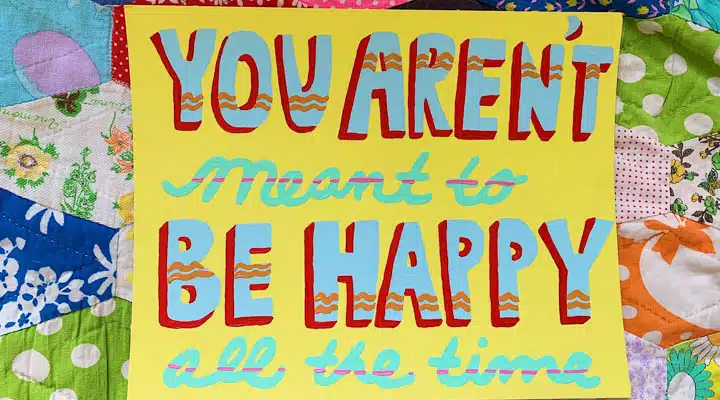 YOU AREN'T
meant to
BE HAPPY
all the time